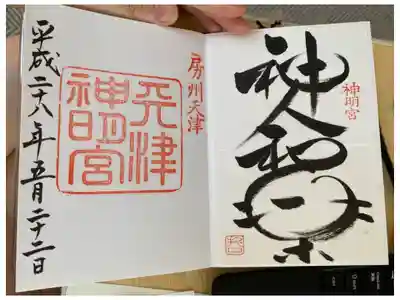 神明宮
神人和楽
房州天津
天津
神明宮
平成二十八年五月二十二日